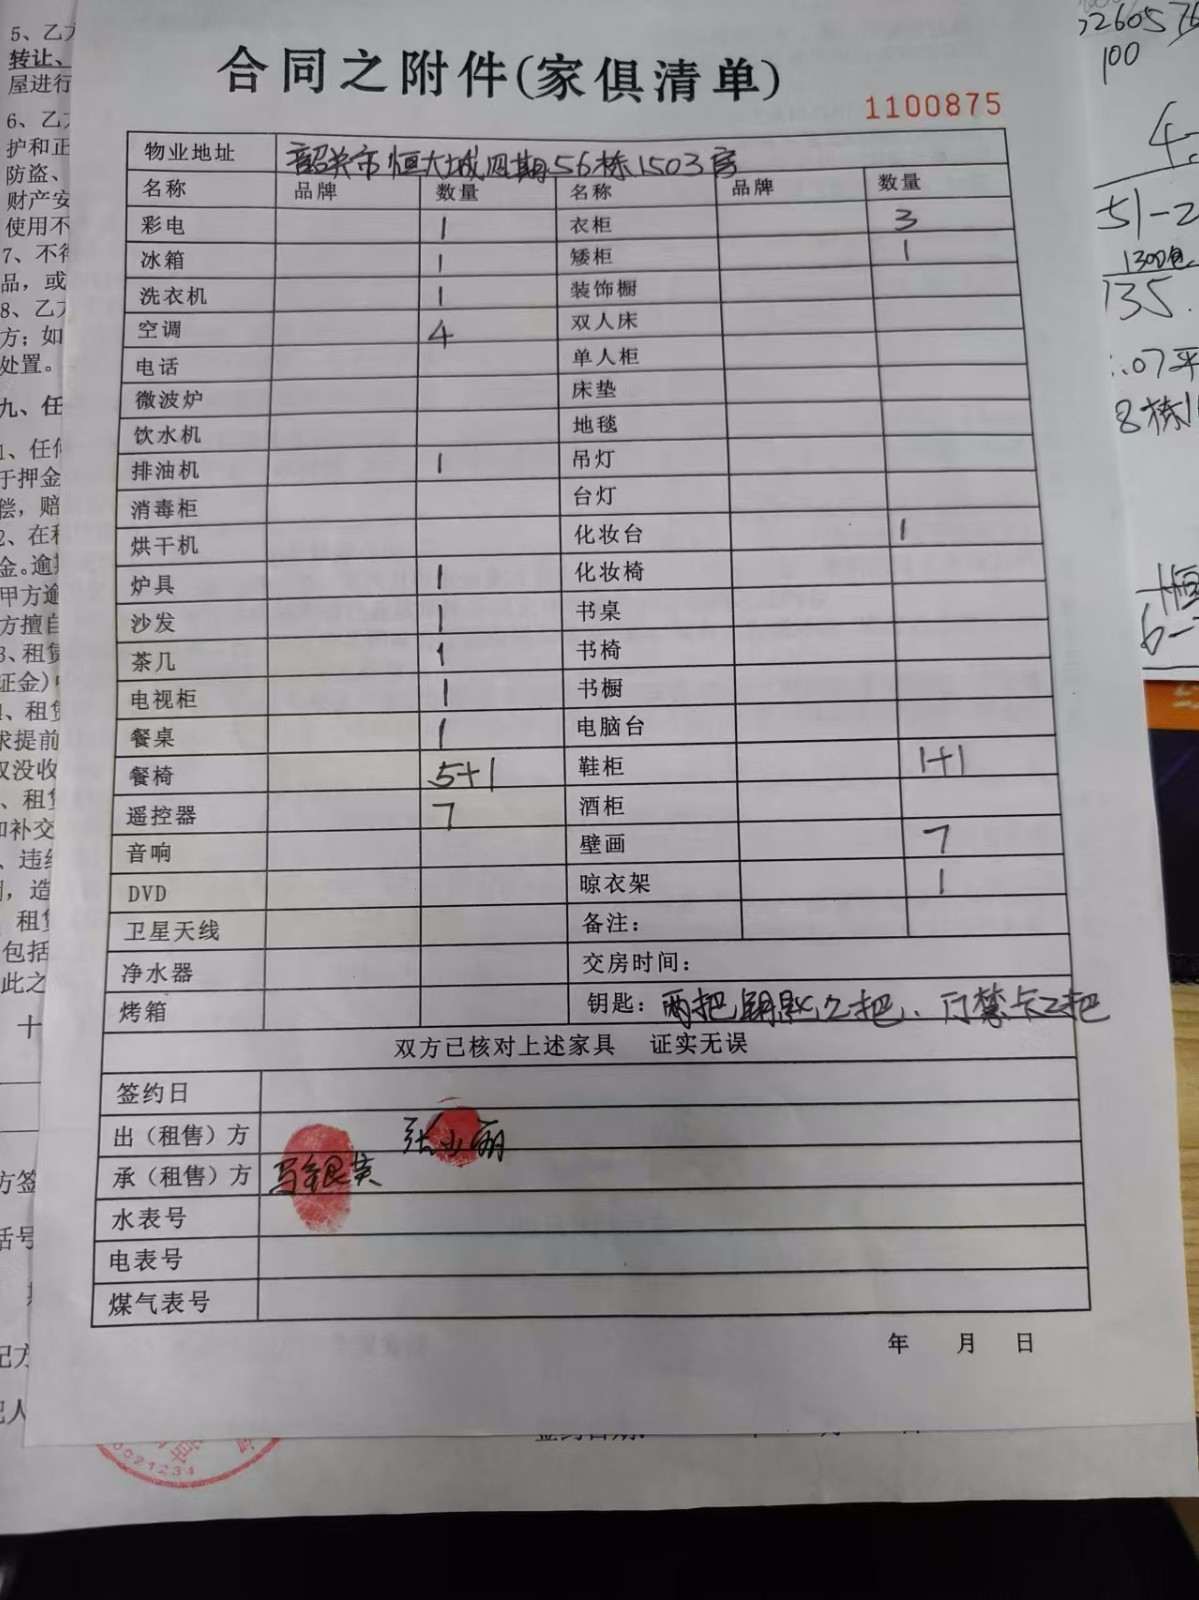 合同之附件(家俱清单)
1100875
物业地址 韶关市恒大城四期56栋1503房
名称 品牌 数量 名称 品牌 数量
彩电 1 衣柜 3
冰箱 1 矮柜 1
洗衣机 1 装饰橱
空调 4 双人床
电话 单人柜
微波炉 床垫
饮水机 地毯
排油机 1 吊灯
消毒柜 台灯
烘干机 化妆台 1
炉具 1 化妆椅
沙发 1 书桌
茶几 1 书椅
电视柜 1 书橱
餐桌 1 电脑台
餐椅 5+1 鞋柜 1+1
遥控器 7 酒柜
音响 壁画 7
DVD 晾衣架 1
卫星天线 备注：
净水器 交房时间：
烤箱 钥匙：两把钥匙2把、门禁卡2把
双方已核对上述家具 证实无误
签约日
出（租售）方 张小丽
承（租售）方 马银英
水表号
电表号
煤气表号
年 月 日
5、乙方
转让、
屋进行
6、乙方
护和正
防盗、
财产安
使用不
7、不得
品，或
8、乙方
方；如
处置。
九、任
1、任何
于押金
偿，赔
2、在租
金。逾期
甲方逾
方擅自
3、租赁
证金）
、租赁
求提前
权没收
、租赁
如补交
、违约
，造
租赁
包括
此之
十
方签
括号
记方
记人
100
51-2
135
.07平
8栋1
6-
0021234
签约日期：